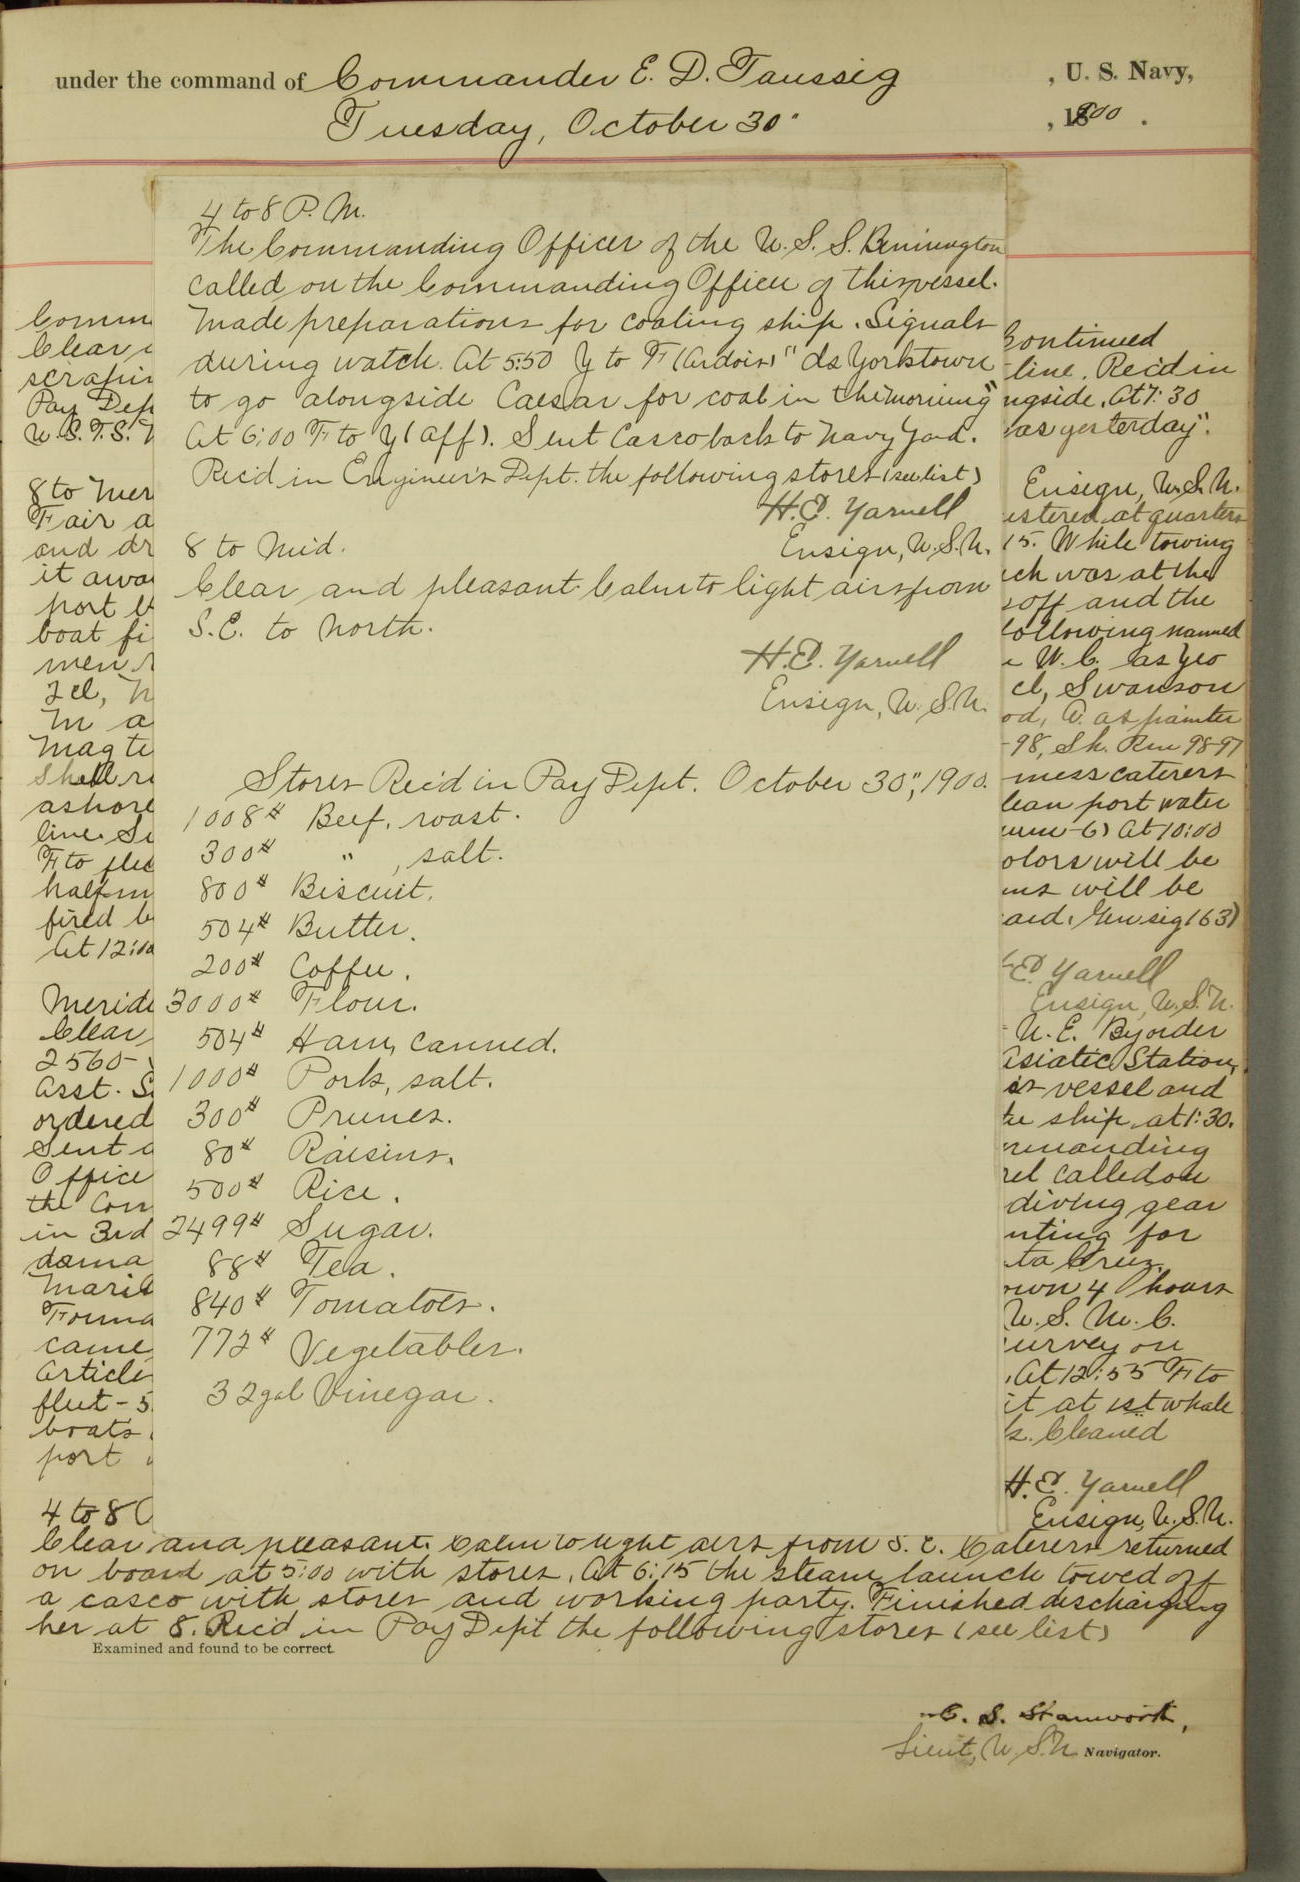 under the command of Commander E. D. Taussig , U. S. Navy,
Tuesday, October 30" , 1900 .
4 to 8 P. M.
The Commanding Officer of the U. S. S. Bennington
called on the Commanding Officer of this vessel.
Made preparations for coaling ship. Signals
during watch. At 5:50 Y to F (Ardois) "ds Yorktown
to go alongside Caesar for coal in the morning"
At 6:00 F to Y (Aff). Sent Casco back to Navy Yard.
Rec'd in Engineer's Dept. the following stores (see list)
H. E. Yarnell
Ensign, U. S. N.
8 to Mid.
Clear and pleasant. Calm to light airs from
S. E. to North.
H. E. Yarnell
Ensign, U. S. N.
Stores Rec'd in Pay Dept. October 30", 1900.
1008# Beef, roast.
300# " , salt.
800# Biscuit.
504# Butter.
200# Coffee.
3000# Flour.
504# Ham, canned.
1000# Pork, salt.
300# Prunes.
80# Raisins.
500# Rice.
2499# Sugar.
88# Tea.
840# Tomatoes.
772# Vegetables.
32 gal Vinegar.
Comm
Clear
scrapin
Pay Dep
U. S. T. S.
8 to Mer
Fair a
and dr
it awa
port
boat fi
men
2cl, N
M a
Mag te
Shell r
ashore
line. Si
F to flee
half-m
fired b
At 12:00
Meridi
Clear,
2560
Asst. S
ordered
Sent a
Office
the Com
in 3rd
dama
Maril
Found
came
Article
fleet - 5
boats
port
4 to 8
Continued
line. Rec'd in
ngside. At 7:30
as yesterday".
Ensign, U. S. N.
ustered at quarters
15. While towing
ich was at the
off and the
following named
W. C. as Yeo
cl, Swanson
od, A. as painter
-98, Sh. Rm 98-97
mess caterers
lean port water
-6) At 10:00
olors will be
ms will be
ard. Gen sig 163)
E. Yarnell
Ensign, U. S. N.
N. E. By order
Asiatic Station,
is vessel and
he ship, at 1:30.
mmanding
rel called on
diving gear
nting for
ta Cruz.
own 4 hours
U. S. M. C.
urvey on
. At 12:55 F to
it at 1st whale
k. Cleaned
H. E. Yarnell
Ensign, U. S. N.
Clear and pleasant. Calm to light airs from S. E. Caterers returned
on board at 5:00 with stores. At 6:15 the steam launch towed off
a casco with stores and working party. Finished discharging
her at 8. Rec'd in Pay Dep't the following stores (see list)
Examined and found to be correct.
C. S. Stanworth,
Lieut, U. S. N. Navigator.